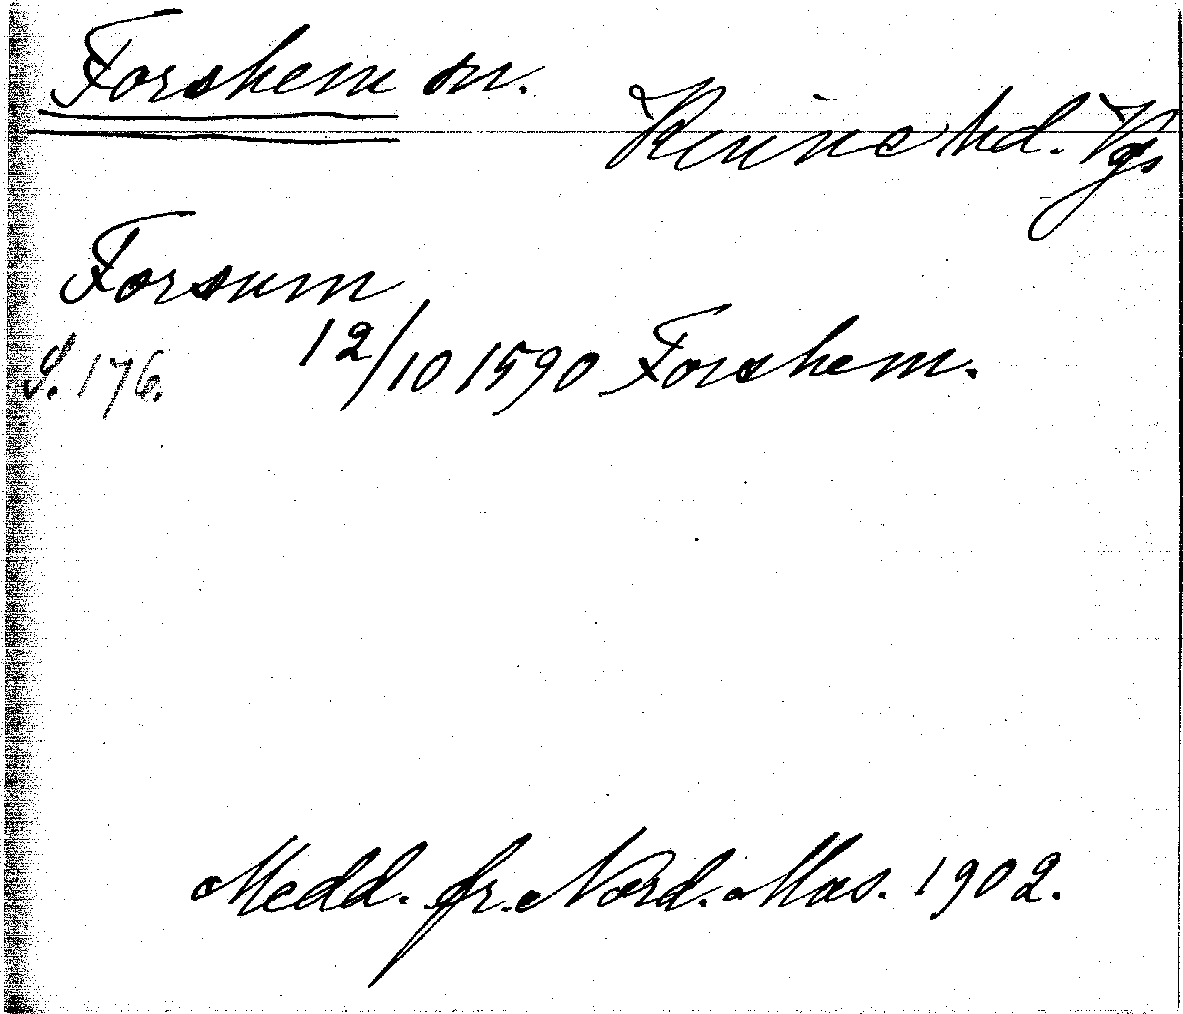 Forshem sn.
Kinne hd. Vgs
Forsum
S. 176. 12/10 1590 Forshem.
Medd. fr. Nord. Mus. 1902.